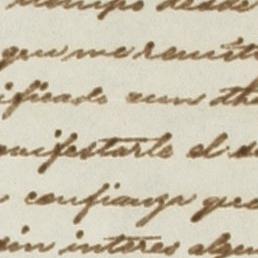 tiempo desde
que me remit
ificado aun
anifestarle el
confianza que
sin interes algun